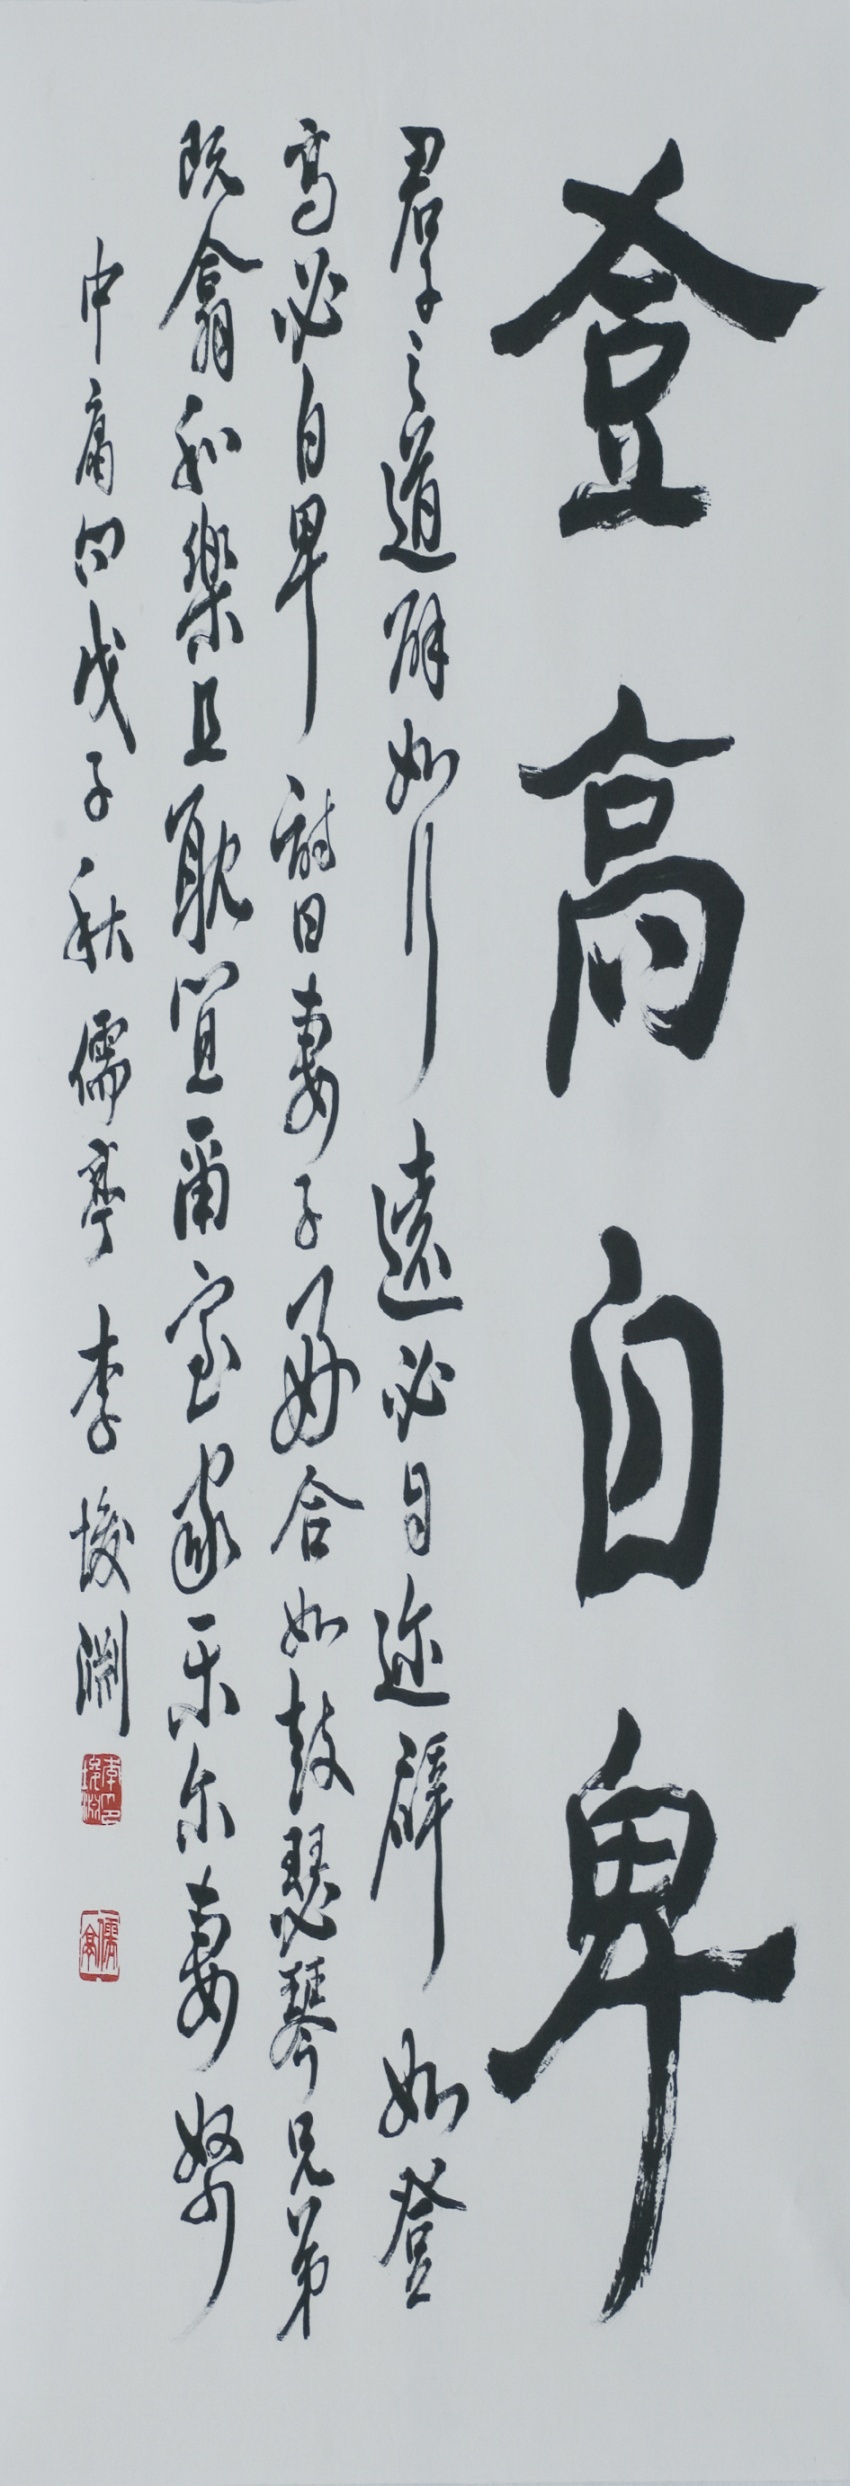 登高自卑
君子之道辟如行遠必自迩辟如登
高必自卑詩曰妻子好合如鼓瑟琴兄弟
既翕和樂且耽宜爾室家樂尔妻帑
中庸句戊子秋儒亭李埈淵
李埈淵印
儒亭